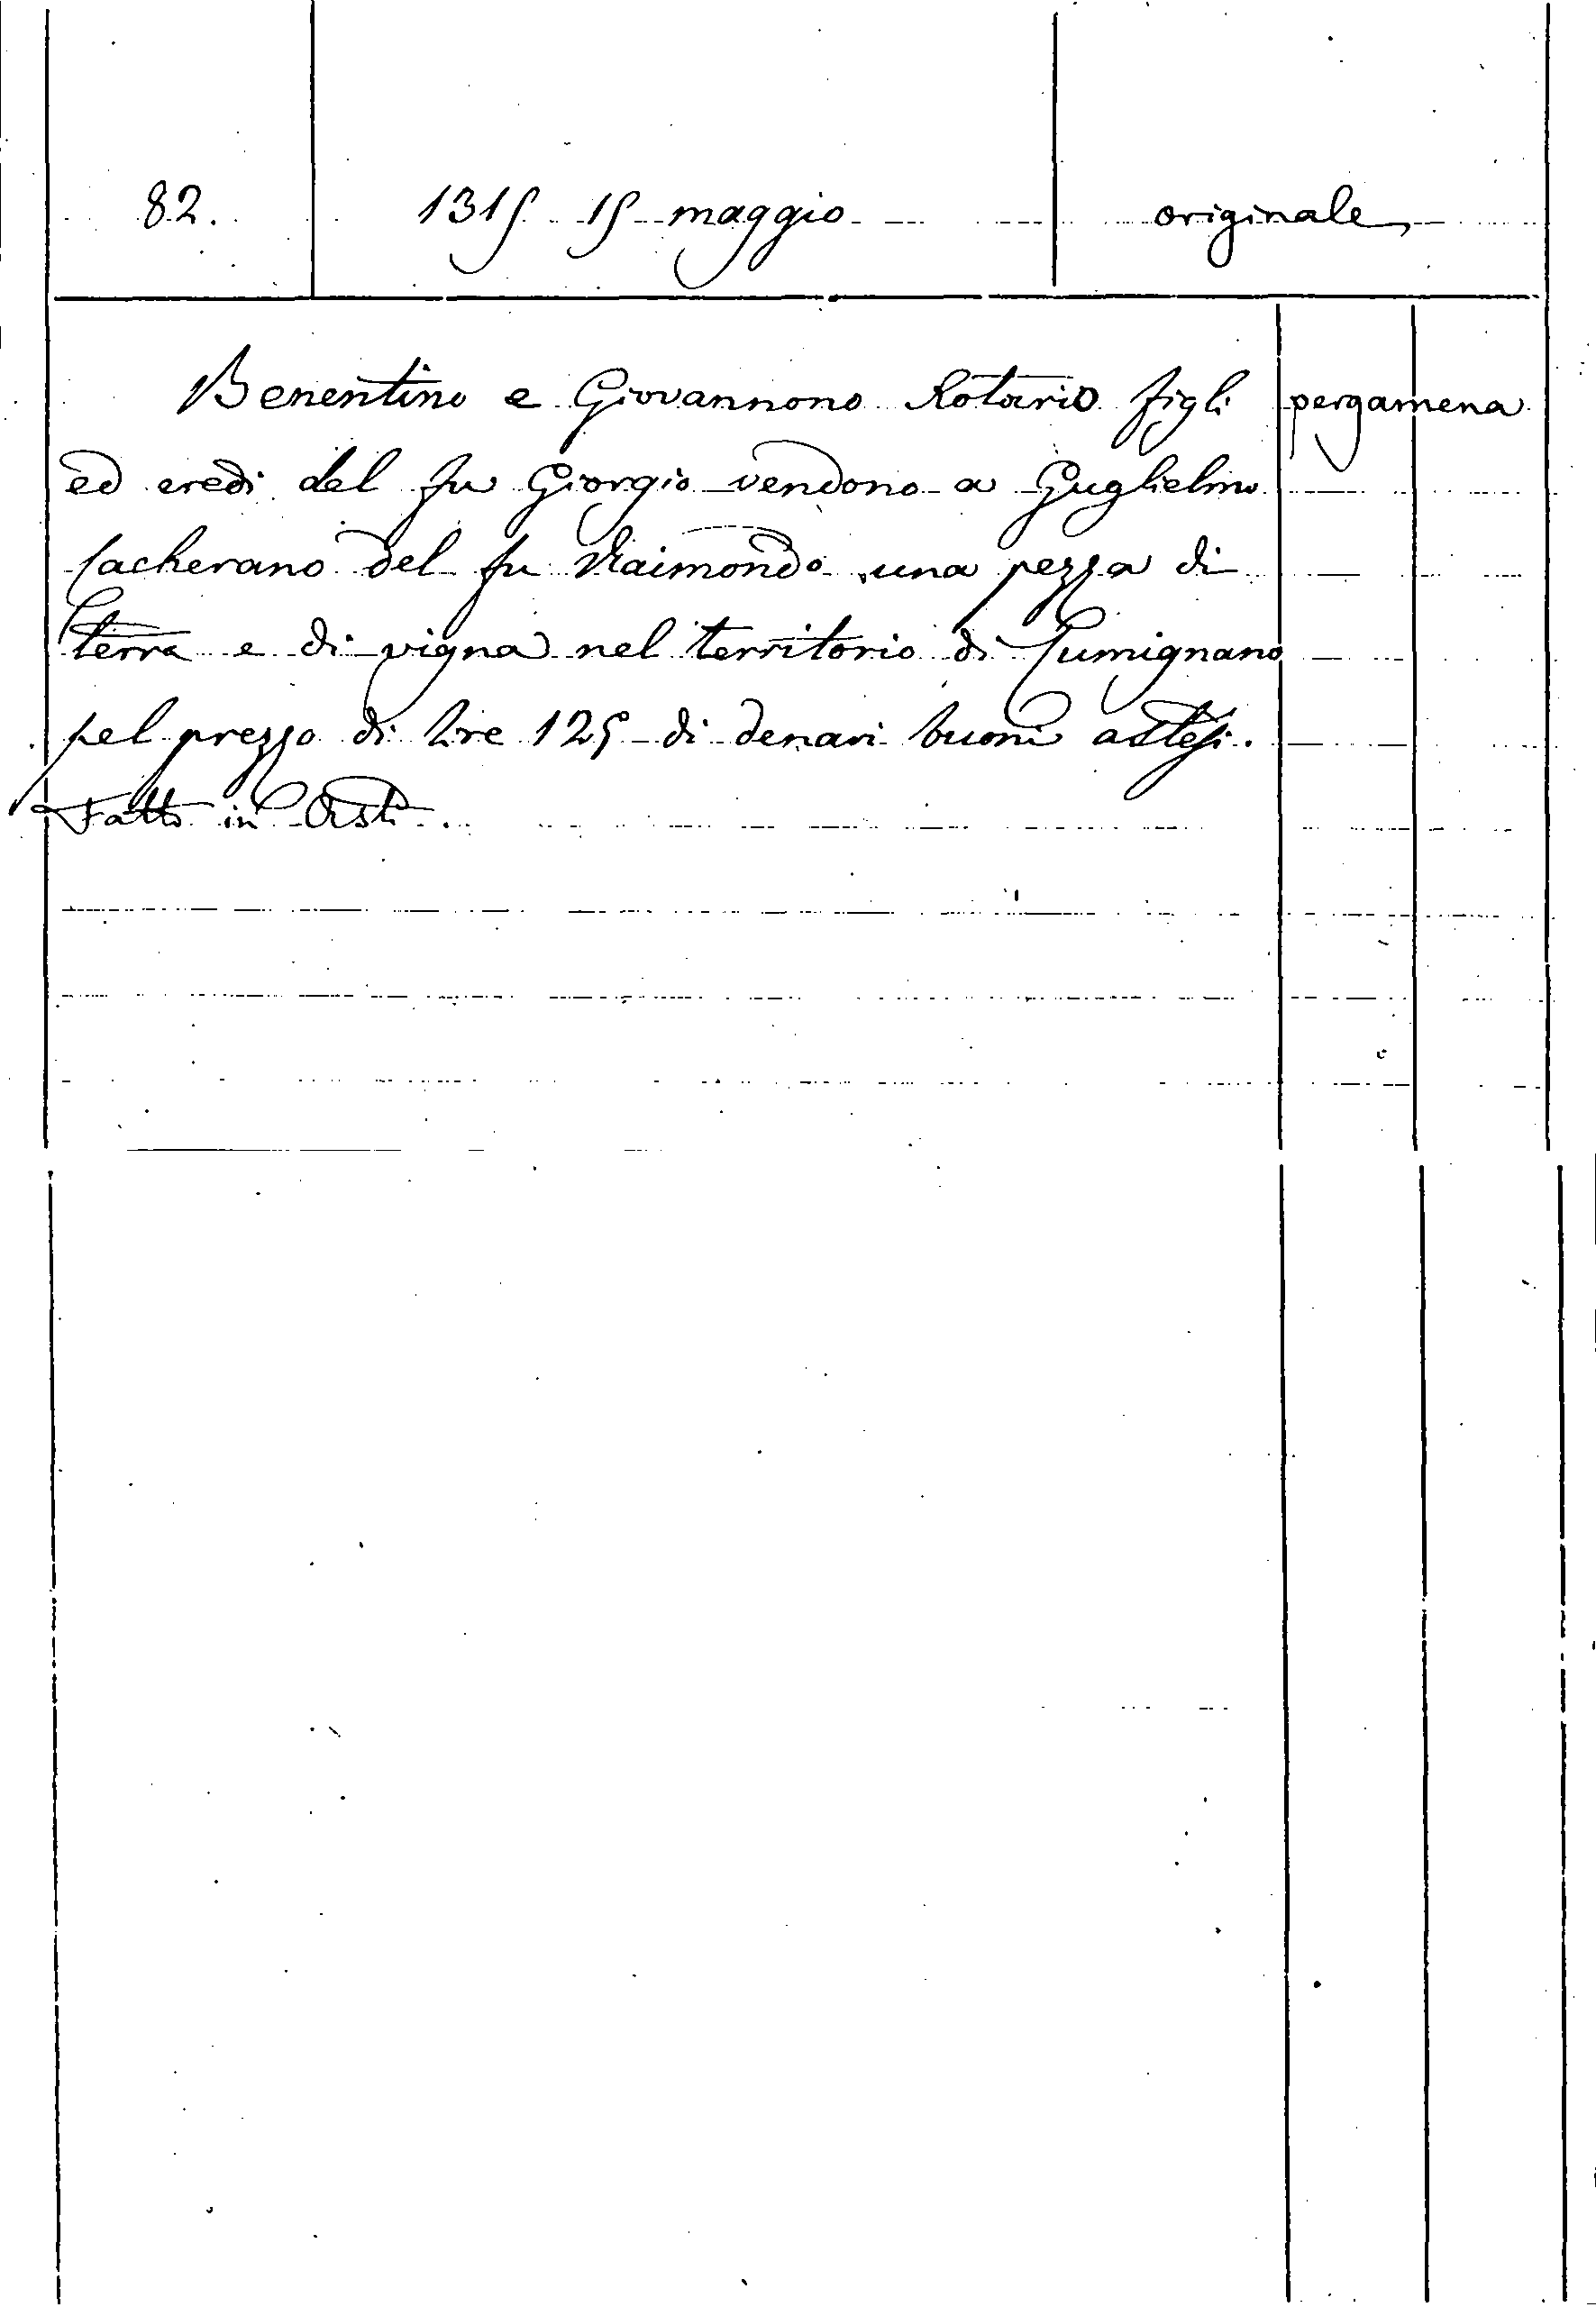 82. 1315 15 maggio originale
Benentino e Giovannono Rotario figli pergamena
ed eredi del fu Giorgio vendono a Guglielmo
Cacherano del fu Raimondo una pezza di
terra e di vigna nel territorio di Cumignano
pel prezzo di lire 125 di denari buoni astesi.
Fatto in Asti.